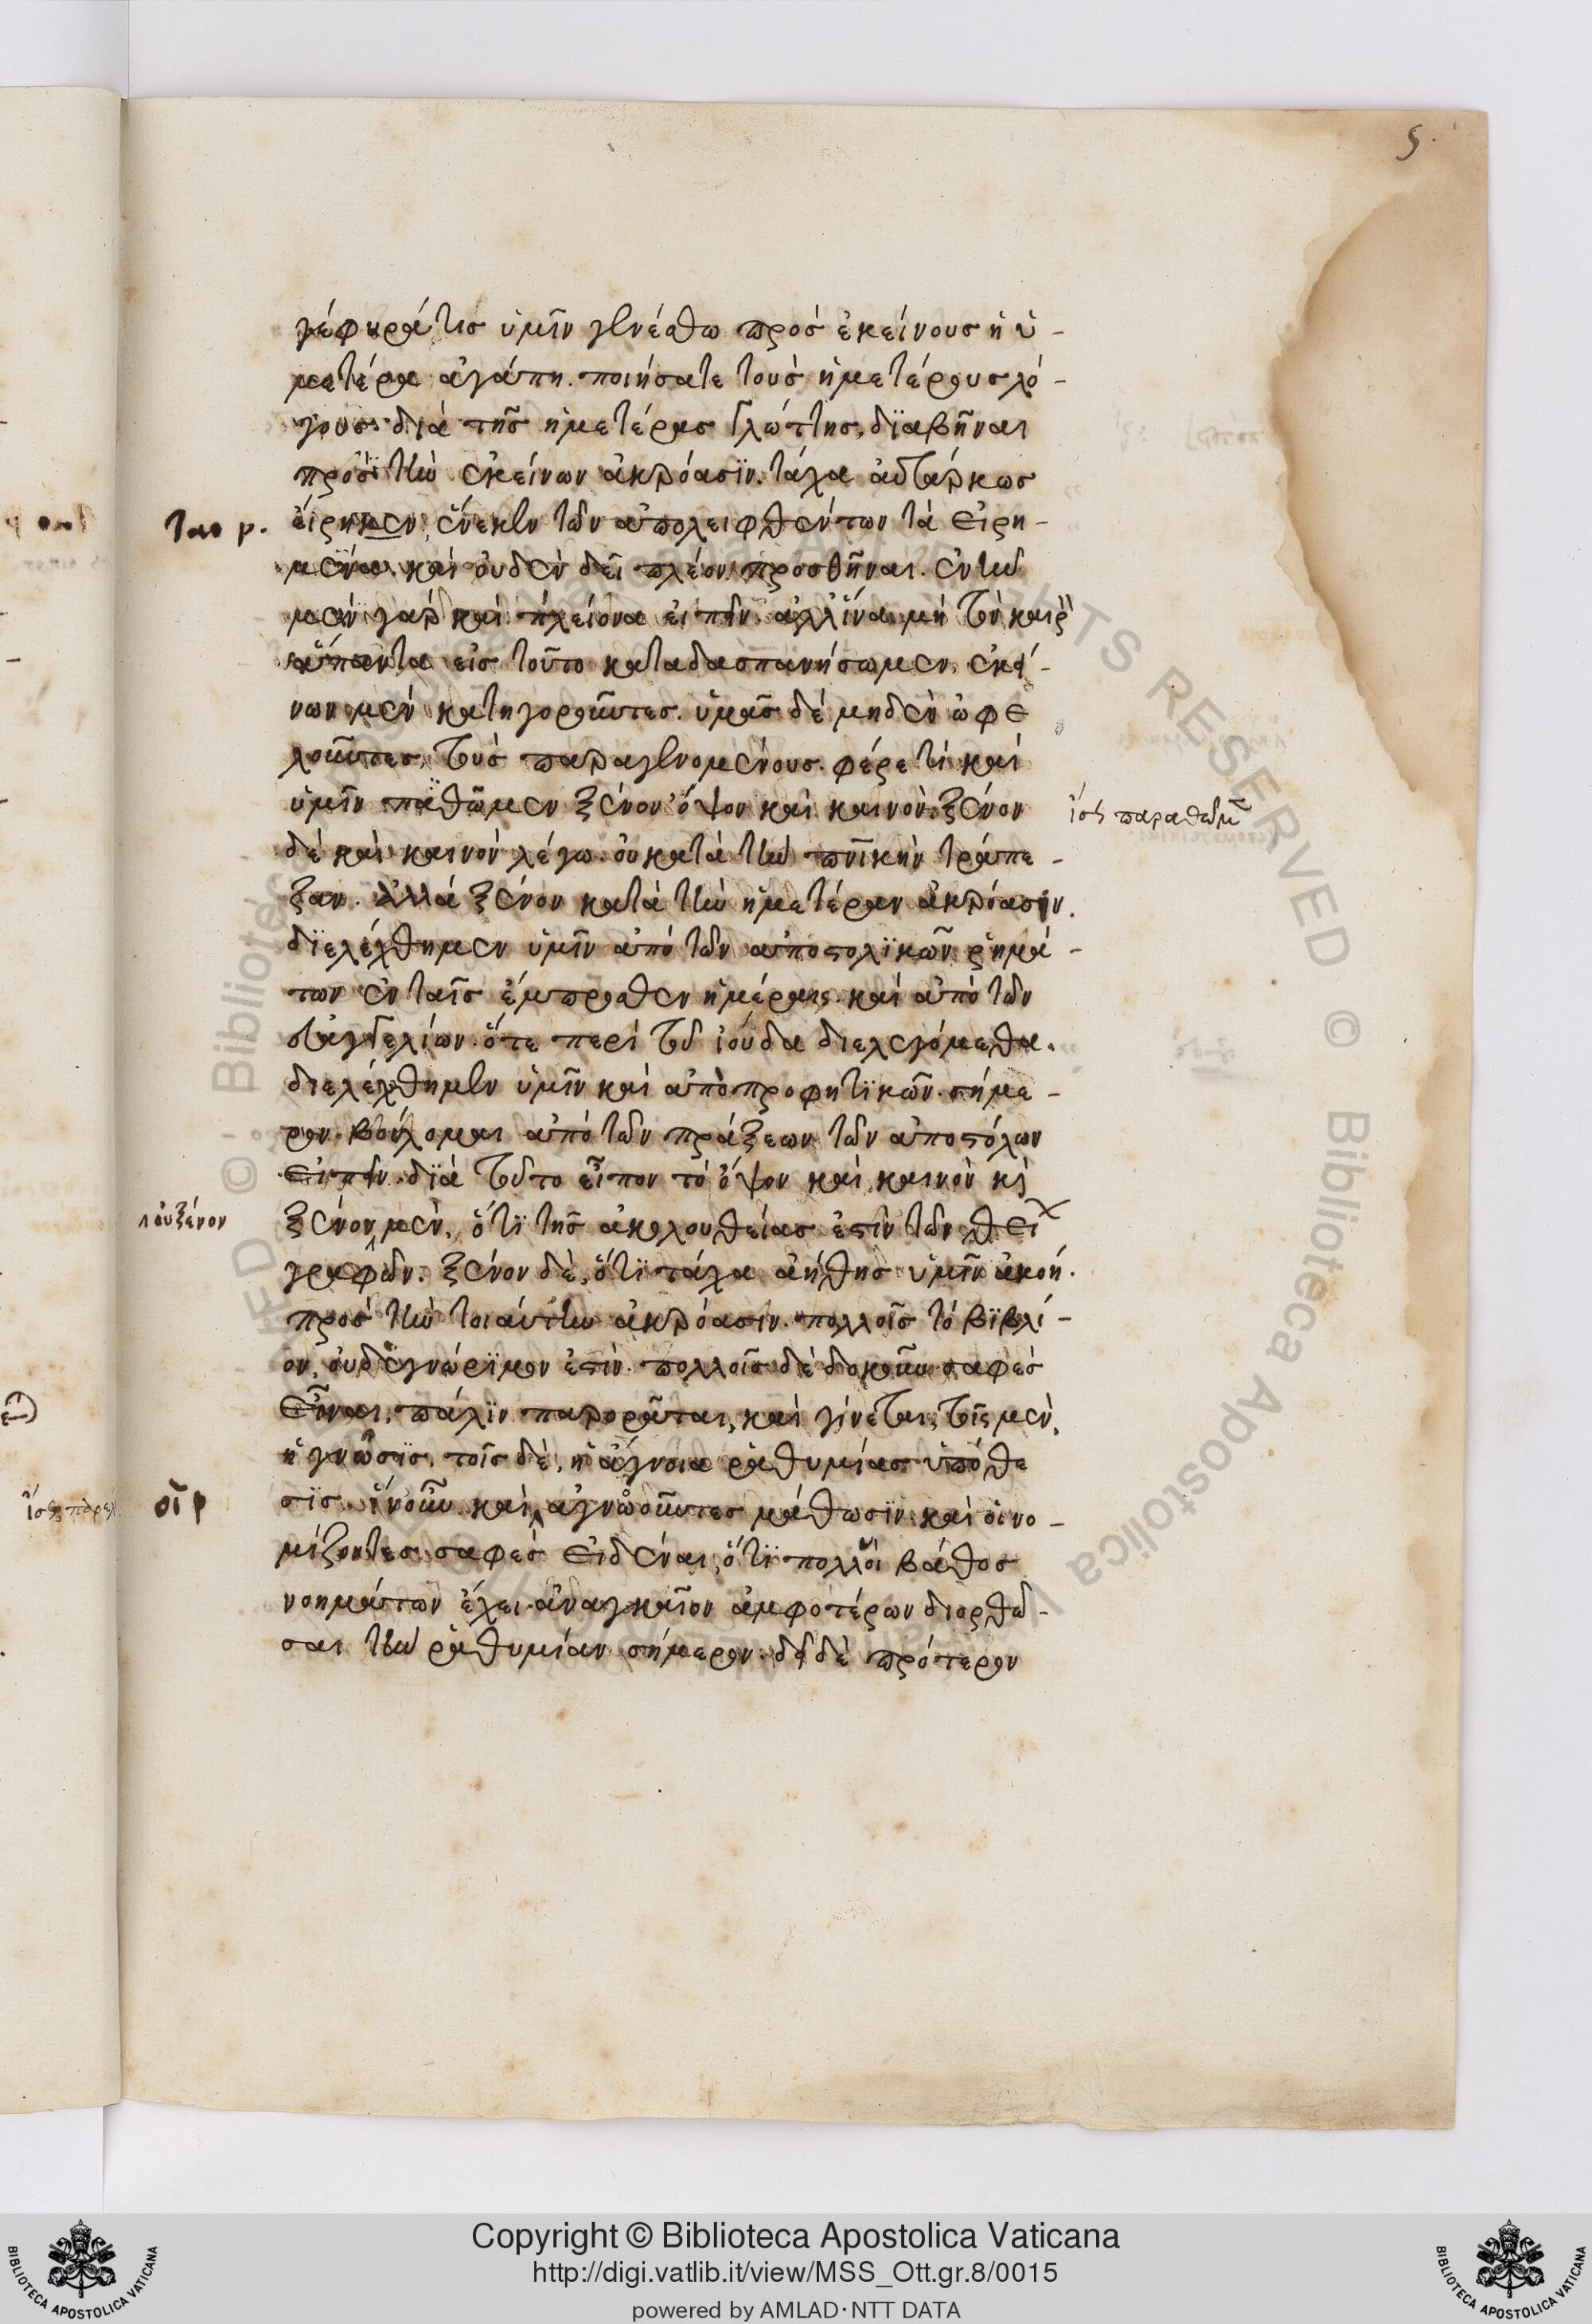 5.
γέφυρά τισ ὑμῖν γινέσθω πρὸσ ἐκείνουσ ἡ ὑ-
μετέρα ἀγάπη. ποιήσατε τοὺσ ἡμετέρουσ λό-
γουσ διὰ τῆσ ἡμετέρασ γλώττησ, δϊαβῆναι
πρὸσ τὴν ἐκείνων ἀκρόασϊν. τάχα αὐτάρκωσ
εἴρηκεν, ἕνεκεν τῶν ἀπολειφθέντων τὰ εἰρη-
μένα. καὶ οὐδὲν δεῖ πλέον προσθῆναι. ἐνῆν
μὲν γὰρ καὶ πλείονα εἰπεῖν. ἀλλ' ἵνα μὴ τὸν καιρὸν
ἅπαντα εἰσ τοῦτο καταδαπανήσωμεν, ἐκεί-
νων μὲν κατηγοροῦντεσ. ὑμᾶσ δὲ μηδὲν ὠφε
λοῦντεσ, τοὺσ παραγινομένουσ. φέρε τι καὶ
ὑμῖν παθῶμεν ξένον ὄψον καὶ καινόν. ξένον
ἴσως παραθῶμεν
δὲ καὶ καινὸν λέγω. οὐ κατὰ τὴν πνϊκὴν τράπε-
ζαν. ἀλλὰ ξένον κατὰ τὴν ἡμετέραν ἀκρόασιν.
δϊελέχθημεν ὑμῖν ἀπὸ τῶν ἀποστολϊκῶν ῥημά-
των ἐν ταῖσ ἔμπροσθεν ἡμέραις. καὶ ἀπὸ τῶν
εὐαγγελίων. ὅτε περὶ τοῦ ἰούδα διελεγόμεθα.
διελέχθημεν ὑμῖν καὶ ἀπὸ προφητϊκῶν. σήμε-
ρον βούλομαι ἀπὸ τῶν πράξεων τῶν ἀποστόλων
εἰπεῖν. δϊὰ τοῦτο εἶπον τὸ ὄψον καὶ καινὸν κὶ
ξένον, μὲν, ὅτϊ τῆσ ἀκολουθείασ ἐστὶν τῶν θείων
γραφῶν. ξένον δὲ, ὅτϊ τάχα ἀήθησ ὑμῖν ἀκοή.
πρὸσ τὴν τοιαύτην ἀκρόασιν. πολλοῖσ τὸ βϊβλί-
ον, οὐδὲ γνώρϊμον ἐστίν. πολλοῖσ δὲ δοκοῦν σαφὲσ
εἶναι, πάλϊν παρορᾶται, καὶ γίνεται, τοῖς μὲν,
ἡ γνῶσϊσ. τοῖσ δὲ, ἡ ἄγνοια ῥαθυμίασ ὑπόθε
οἵ ρ
σϊσ. ἵν' οὖν καὶ ἀγνοοῦντεσ μάθωσϊν. καὶ οἱ νο-
μίζοντεσ σαφὲσ εἰδέναι, ὅτϊ πολλοὶ βάθοσ
νοημάτων ἔχει. ἀναγκαῖον ἀμφοτέρων διορθῶ-
σαι τὴν ῥαθυμίαν σήμερον. δεῖ δὲ πρότερον
Copyright © Biblioteca Apostolica Vaticana
http://digi.vatlib.it/view/MSS_Ott.gr.8/0015
powered by AMLAD·NTT DATA